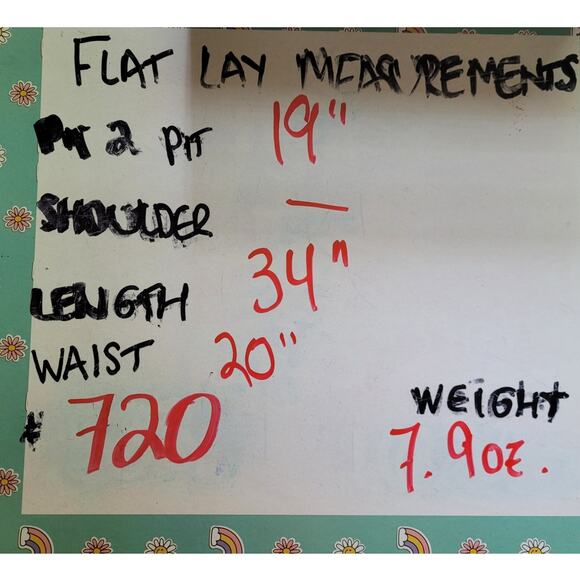 FLAT LAY MEASUREMENTS
PIT 2 PIT 19"
SHOULDER —
LENGTH 34"
WAIST 20"
# 720
WEIGHT
7.9 oz.